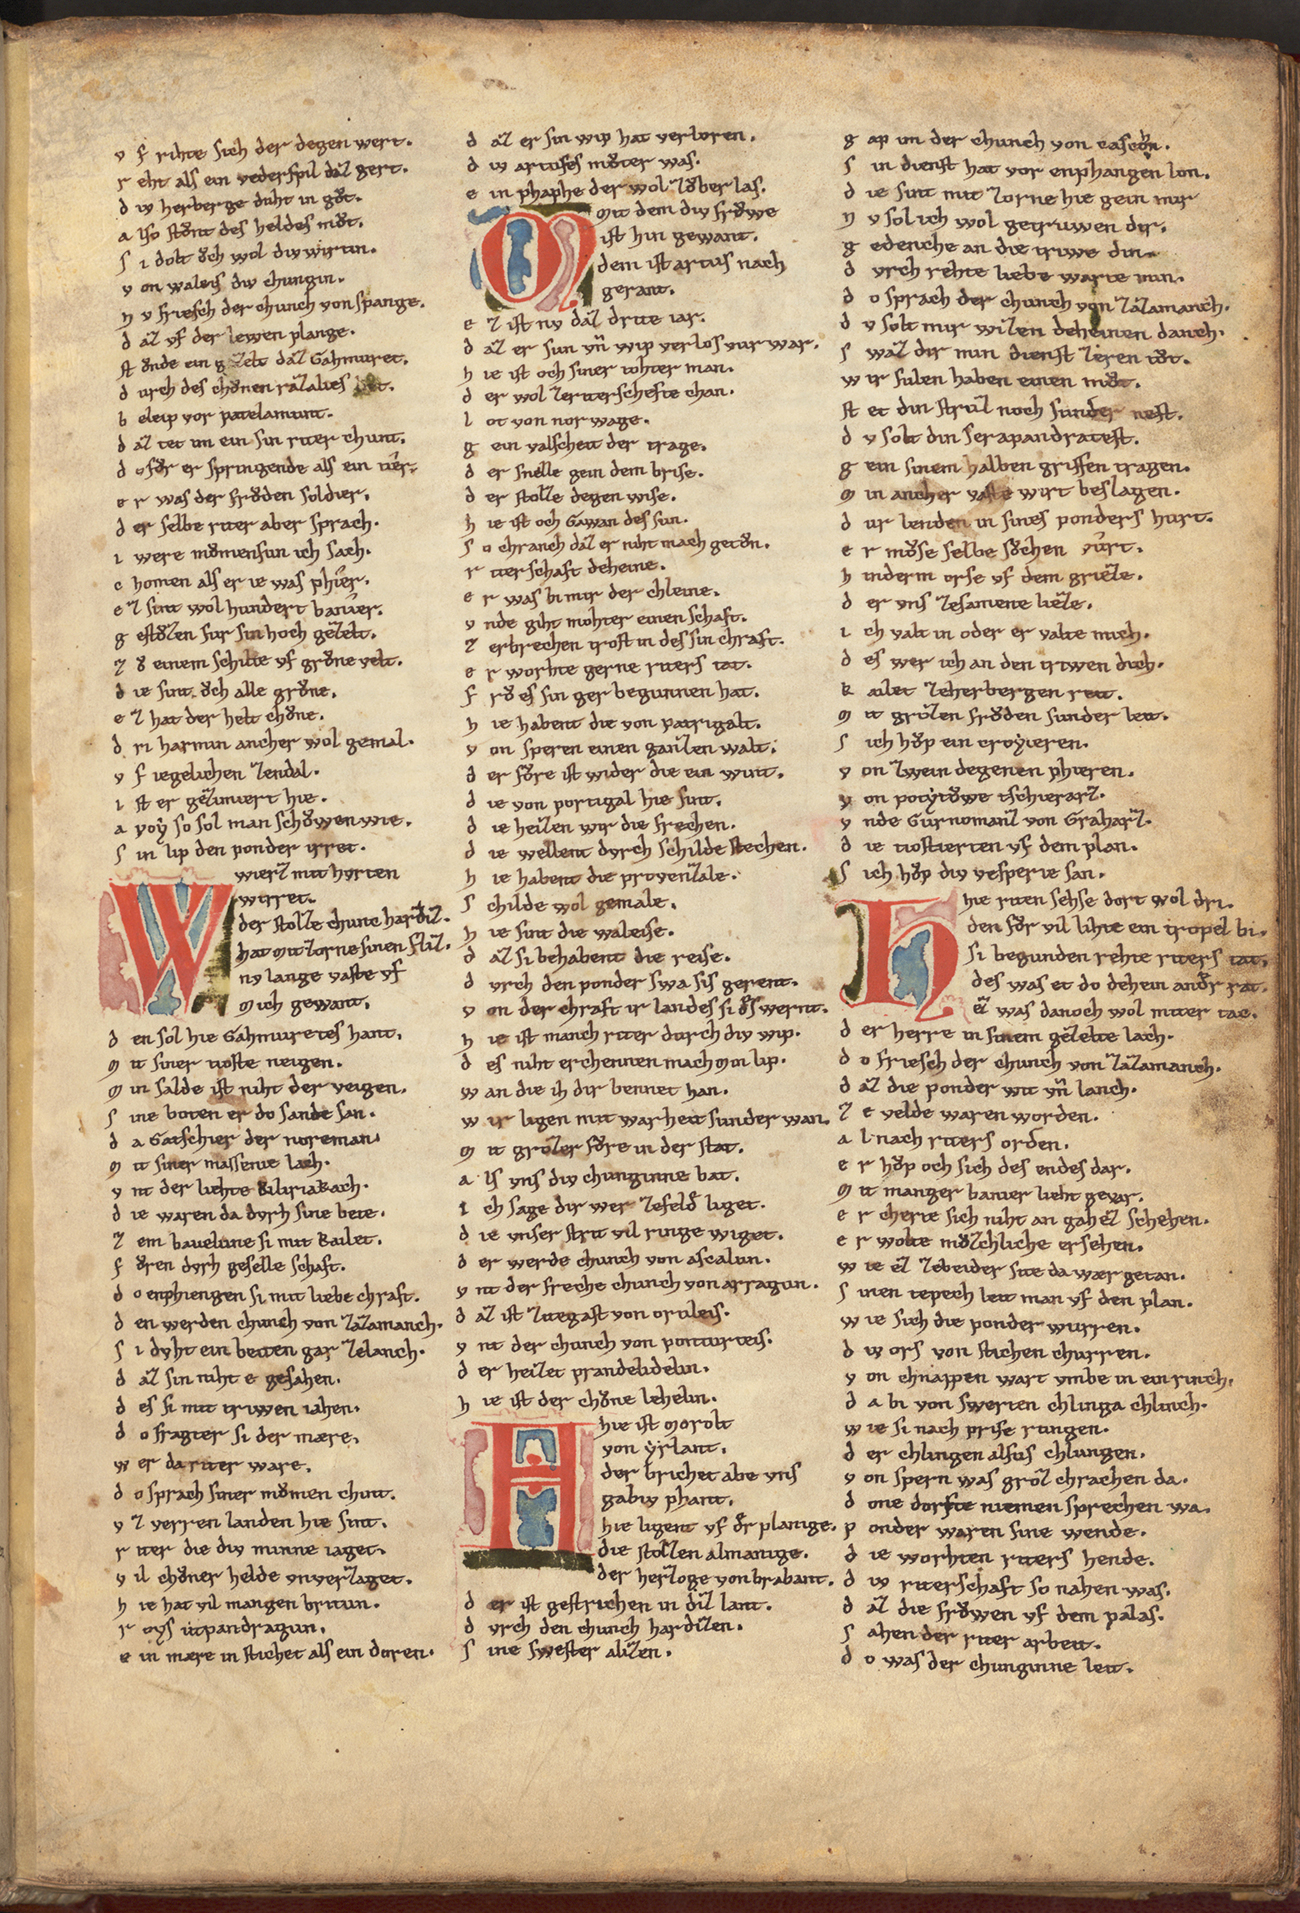 v f rihte sich der degen wert.
r eht als ein vederspil daz gert.
d iv herberge duht in gůt.
a lso stůnt des heldes můt.
s i dolt ǒch wol div wirtin.
v on waleis div chungin.
n v friesch der chunch von spange.
d az vf der lewen plange.
st ůnde ein gezelt daz Gahmuret.
d urch des chůnen razalies bet.
b eleip vor patelamunt.
d az tet im ein sin riter chunt.
d o fůr er springende als ein tier.
e r was der frǒden soldier.
d er selbe riter aber sprach.
i were můmensun ich sach.
c homen als er ie was phier.
e z sint wol hundert banier.
g estǒzen fur sin hoch gezelt.
z ǒ einem schilte vf grůne velt.
d ie sint ǒch alle grůne.
e z hat der helt chůne.
d ri harmin ancher wol gemal.
v f iegelichen zendal.
i st er gezimiert hie.
a voy so sol man schǒwen wie.
s in lip den ponder irret.
Wierz mit hvrten
wirret.
der stolze chune hardiz.
hat mit zorne sinen fliz.
nv lange vaste vf
mich gewant.
d en sol hie Gahmuretes hant.
m it siner tioste neigen.
m in salde ist niht der veigen.
s ine boten er do sande san.
d a Gatschier der noreman.
m it siner massenie lach.
v nt der liehte kiliriakach.
d ie waren da dvrh sine bete.
z em bavelune si mit kailet.
f ůren dvrh geselle schaft.
d o enphiengen si mit liebe chraft.
d en werden chunch von zazamanch.
s i dvht ein beiten gar zelanch.
d az sin niht e gesahen.
d es si mit triwen iahen.
d o fragter si der mære.
w er da riter ware.
d o sprach siner můmen chint.
v z verren landen hie sint.
r iter die div minne iaget.
v il chůner helde vnverzaget.
h ie hat vil mangen britun.
r oys utpandragun.
e in mære in stichet als ein doren.
d az er sin wip hat verloren.
d iv artuses můter was.
e in phaphe der wol zǒber las.
Mit dem div frǒwe
ist hin gewant.
dem ist artus nach
gerant.
e z ist nv daz drite iar.
d az er sun vn̄ wip verlos fur war.
h ie ist och siner tohter man.
d er wol zeriterschefte chan.
l ot von norwage.
g ein valscheit der trage.
d er snelle gein dem brise.
d er stolze degen wise.
h ie ist och Gawan des sun.
s o chranch daz er niht mach getǒn.
r iterschaft deheine.
e r was bi mir der chleine.
v nde giht mohter einen schaft.
z erbrechen trost in des sin chraft.
e r worhte gerne riters tat.
f rů es sin ger begunnen hat.
h ie habent die von patrigalt.
v on speren einen ganzen walt.
d er fǒre ist wider die ein wint.
d ie von portigal hie sint.
d ie heizen wir die frechen.
d ie wellent dvrch schilde stechen.
h ie habent die provenzale.
s childe wol gemale.
h ie sint die waleise.
d az si behabent die reise.
d vrch den ponder swa sis gerent.
v on der chraft ir landes si ds wernt.
h ie ist manch riter durch div wip.
d es niht erchennen mach min lip.
w an die ih dir bennet han.
w ir ligen mit warheit sunder wan.
m it grozer fůre in der stat.
a ls vns div chunginne bat.
i ch sage dir wer zefelde liget.
d ie vnser strit vil ringe wiget.
d er werde chunch von ascalun.
v nt der freche chunch von arragun.
d az ist zitegast von orileis.
v nt der chunch von ponturteis.
d er heizet prandelidelin.
h ie ist der chůne lehelin.
Hhie ist morolt
von ẏrlant.
der brichet abe vns
gabiv phant.
hie ligent vf der planige.
die stolzen almanige.
der herzoge von brabant.
d er ist gestrichen in diz lant.
d vrch den chunch hardizen.
s ine swester alizen.
g ap im der chunch von cascon.
s in dienst hat vor enphangen lon.
d ie sint mit zorne hie gein mir
n v sol ich wol getruwen dir.
g edenche an die triwe din.
d vrch rehte liebe warte min.
d o sprach der chunch von zazamanch.
d v solt mir wizen deheinen danch.
s waz dir min dienst zeren tǒt.
w ir sulen haben einen můt.
st et din struz noch sunder nest.
d v solt din serapandratest.
g ein sinem halben griffen tragen.
m in ancher vaste wirt beslagen.
d ur lenden in sines ponders hurt.
e r můse selbe sůchen furt.
h inderm orse vf dem grieze.
d er vns zesamene lieze.
i ch valt in oder er valte mich.
d es wer ich an den triwen dich.
k ailet zeherbergen reit.
m it grozen frǒden sunder leit.
s ich hůp ein croyieren.
v on zwein degenen phieren.
v on poytǒwe tschierarz.
v nde Gurnomanz von Graharz.
d ie tiostierten vf dem plan.
s ich hůp div vesperie san.
Hhie riten sehse dort wol dri.
den fůr vil lihte ein tropel bi.
si begunden rehte riters tat.
des was et do dehein ander rat.
ez was danoch wol mitter tac.
d er herre in sinem gezelte lach.
d o friesch der chunch von zazamanch.
d az die ponder wit vn̄ lanch.
z e velde waren worden.
a l nach riters orden.
e r hůp och sich des endes dar.
m it manger banier lieht gevar.
e r cherte sich niht an gahez schehen.
e r wolte můzchliche ersehen.
w ie ez zebeider site da wær getan.
s inen tepech leit man vf den plan.
w ie sich die ponder wurren.
d iv ors von stichen churren.
v on chnappen wart vmbe in ein rinch.
d a bi von swerten chlinga chlinch.
w ie si nach prise rungen.
d er chlingen alsus chlungen.
v on spern was groz chrachen da.
d one dorfte niemen sprechen wa.
p onder waren sine wende.
d ie worhten riters hende.
d iv riterschaft so nahen was.
d az die frǒwen vf dem palas.
s ahen der riter arbeit.
d o was der chunginne leit.